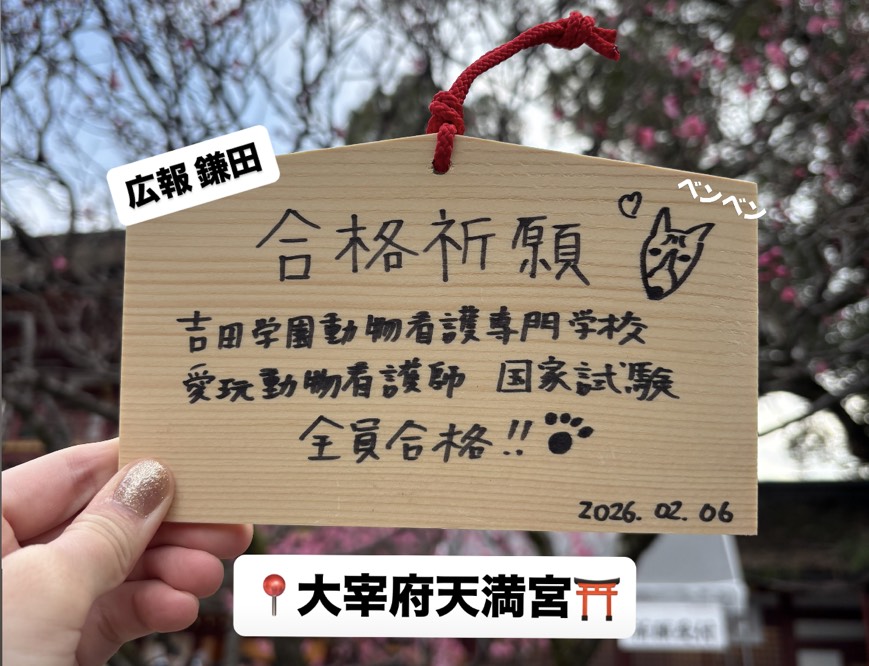 広報 鎌田
ベンベン
合格祈願
吉田学園動物看護専門学校
愛玩動物看護師 国家試験
全員合格!!
2026.02.06
大宰府天満宮